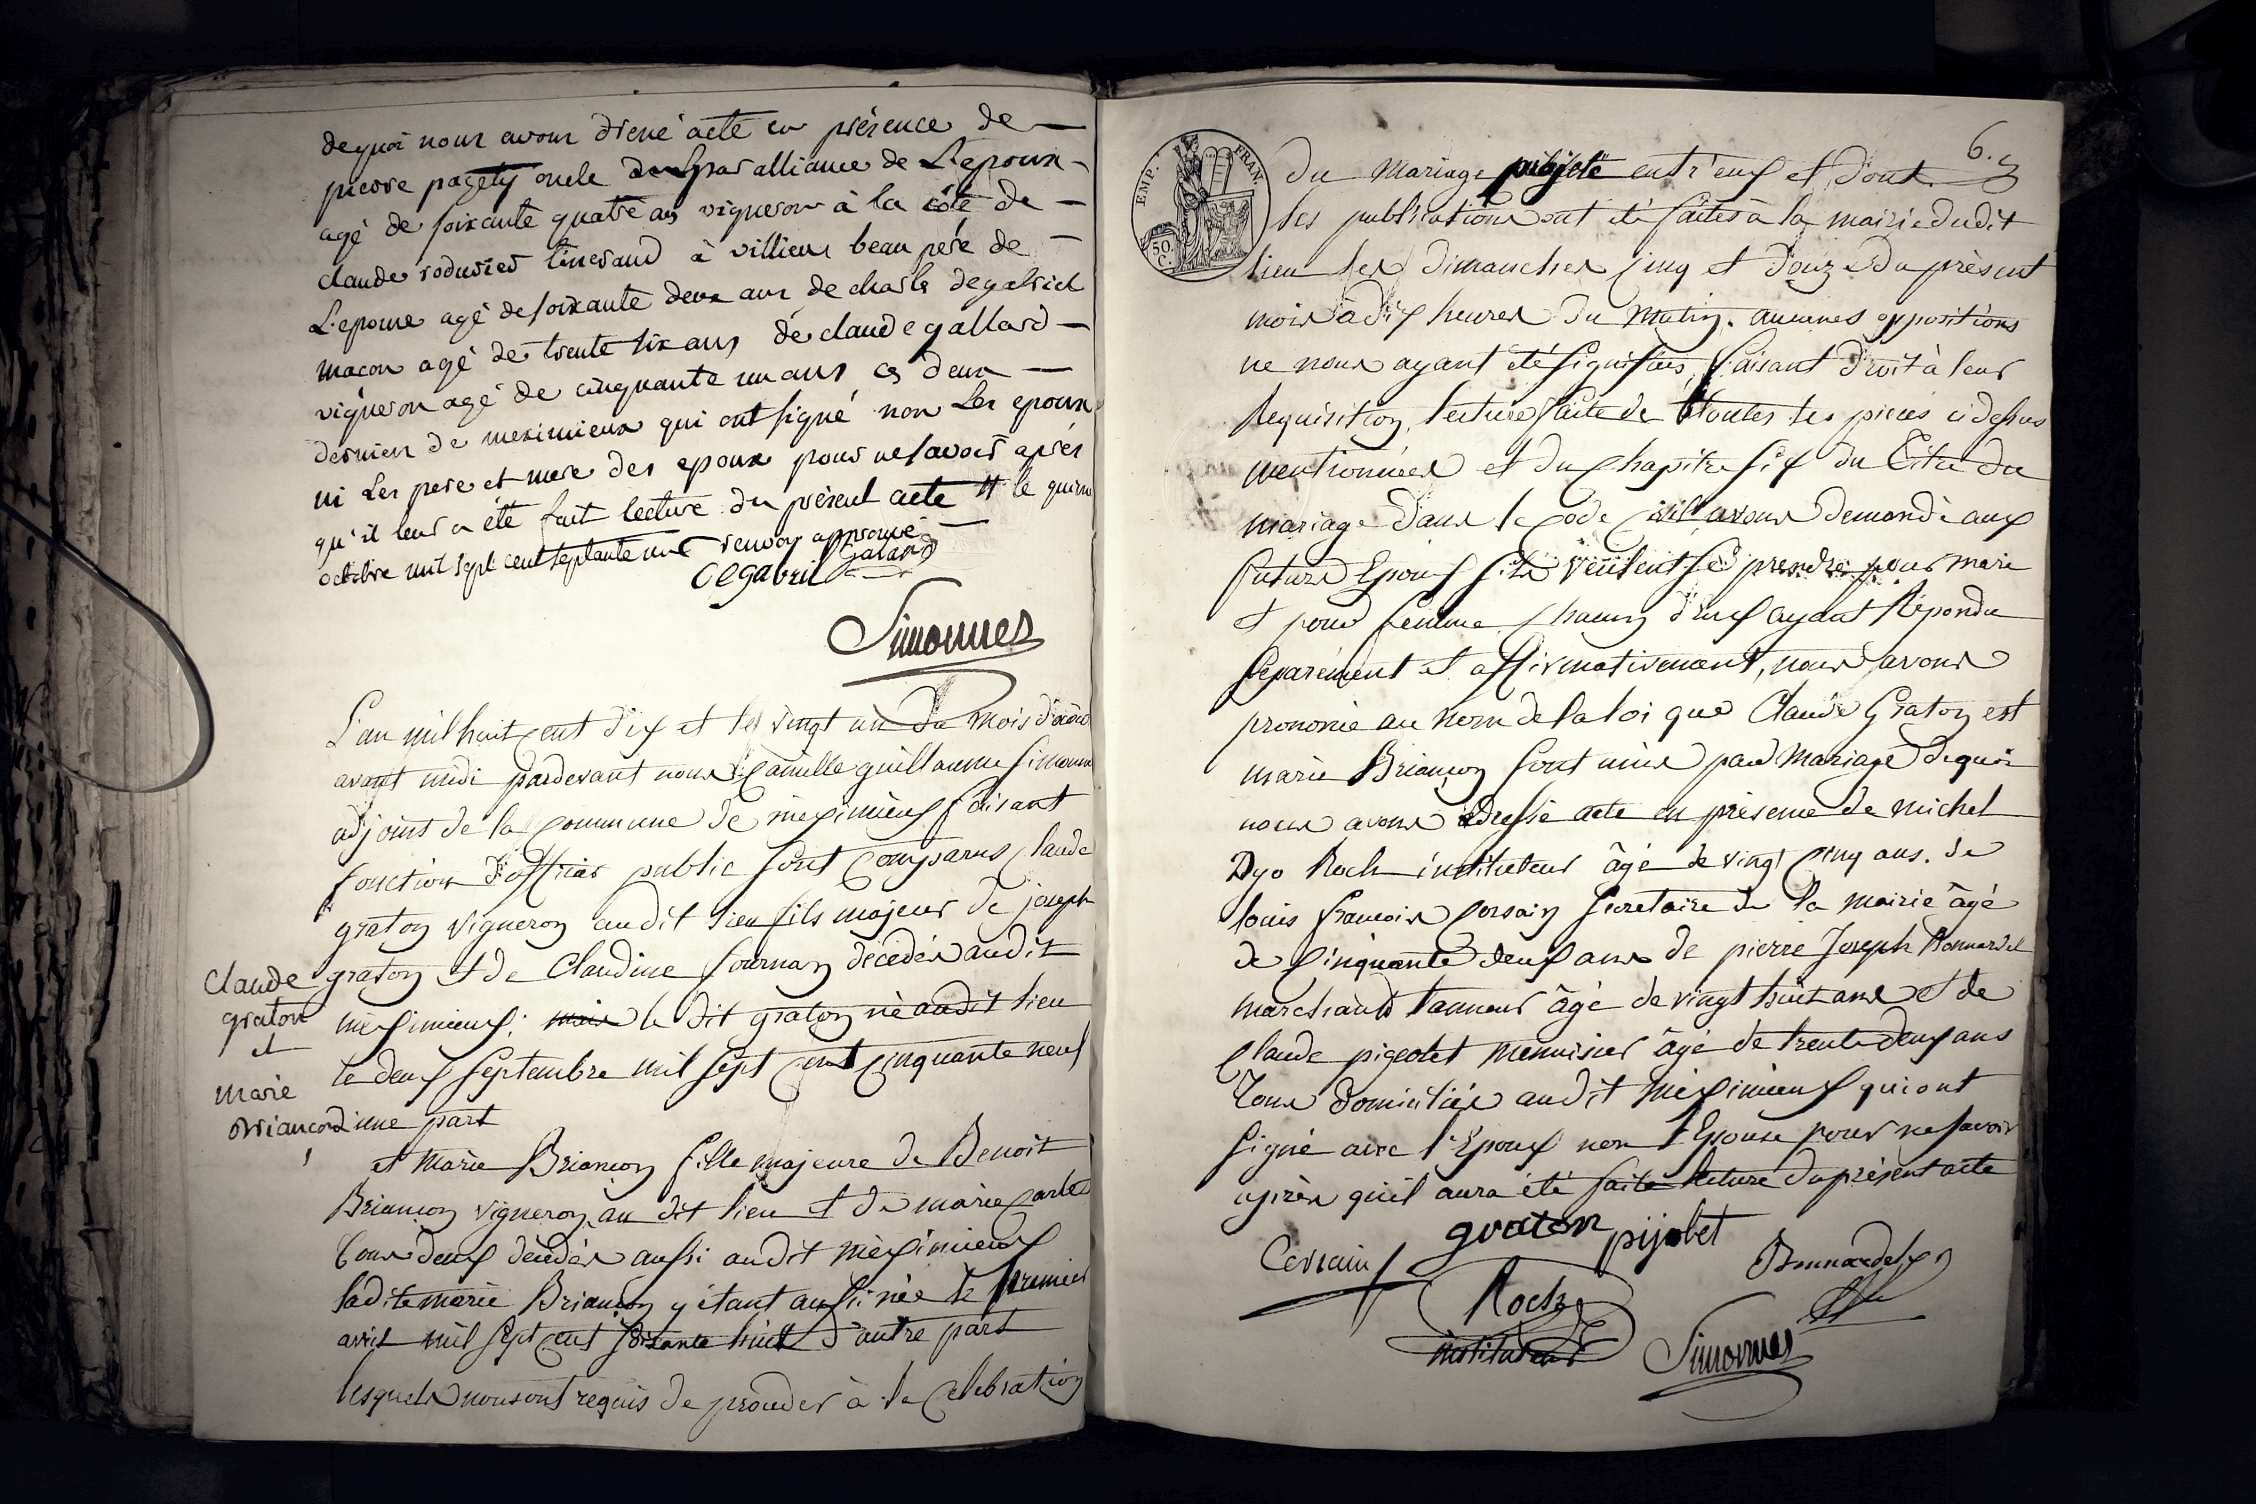 dequoi nous avons dréné acte en présence de
pierre pagety oncle par alliance de L'epoux
agé de soixante quatre ans vigneron à la côte de
claude rodurier tincrand à villieux beau père de
L'epouse agé de soixante deux ans de charle degabriel
macon agé de trente six ans de claude gallard
vigneron agé de cinquante un ans ces deux
dernien de meximieux qui ont signé non Les epoux
ni Les pere et mere des epoux pour ne savoir après
qu'il leur a été fait lecture du présent acte # le quinze
octobre mil sept cent septante un renvoy approuvé
Cegabril Galard
Simonnet
L'an mil huit cent dix et le vingt un du mois d'aoû
avant midi pardevant nous Camille guillaume Simonne
adjoint de la commune de méximieux faisant
fonction d'officier public sont comparus Claude
graton vigneron audit lieu fils majeur de joseph
graton et de Claudine fournan décédés audit
méximieux; mais le dit graton né audit lieu
le deux septembre mil sept cent cinquante neuf
d'une part
Claude
graton
et
marie
Briancon
et Marie Briançon fille majeure de Benoit
Briançon vigneron au dit lieu et de marie
tous deux décédés aussi audit méximieux
ladite marie Briançon y étant aussi née le premier
avril mil sept cent soixante huit d'autre part
lesquels nous ont requis de proceder à la Célébration
6.
EMP. FRAN.
50 C.
du mariage projeté entr'eux et dont
les publications ont été faites à la mairie dudit
lieu les dimanches cinq et douze du présent
mois à dix heures du matin. aucunes oppositions
ne nous ayant été signifiées, faisant droit à leur
Requisition, lecture faite de toutes les pieces ci dessus
mentionnées et du chapitre six du Titre du
mariage dans le Code Civil avons demandé aux
futurs Epoux s'ils veulent se prendre pour mari
et pour femme chacun d'eux ayant Répondu
séparément et affirmativement, nous avons
prononcé au nom de la loi que Claude Graton est
marie Briançon sont unis par Mariage dequoi
nous avons dressé acte en présence de michel
Dyo Roch instituteur âgé de vingt cinq ans. de
louis françois Corsain secretaire de la mairie âgé
de cinquante deux ans de pierre Joseph Bonnardel
marchand tanneur âgé de vingt huit ans et de
Claude pigeolet menuisier âgé de trente deux ans
Tous domiciliés audit Méximieux qui ont
signé avec l'Epoux non l'Epouse pour ne savoir
après qu'il aura été faite lecture du présent acte
graton pijolet
Corsain Bonnardel
Roch
instituteur
Simonnet